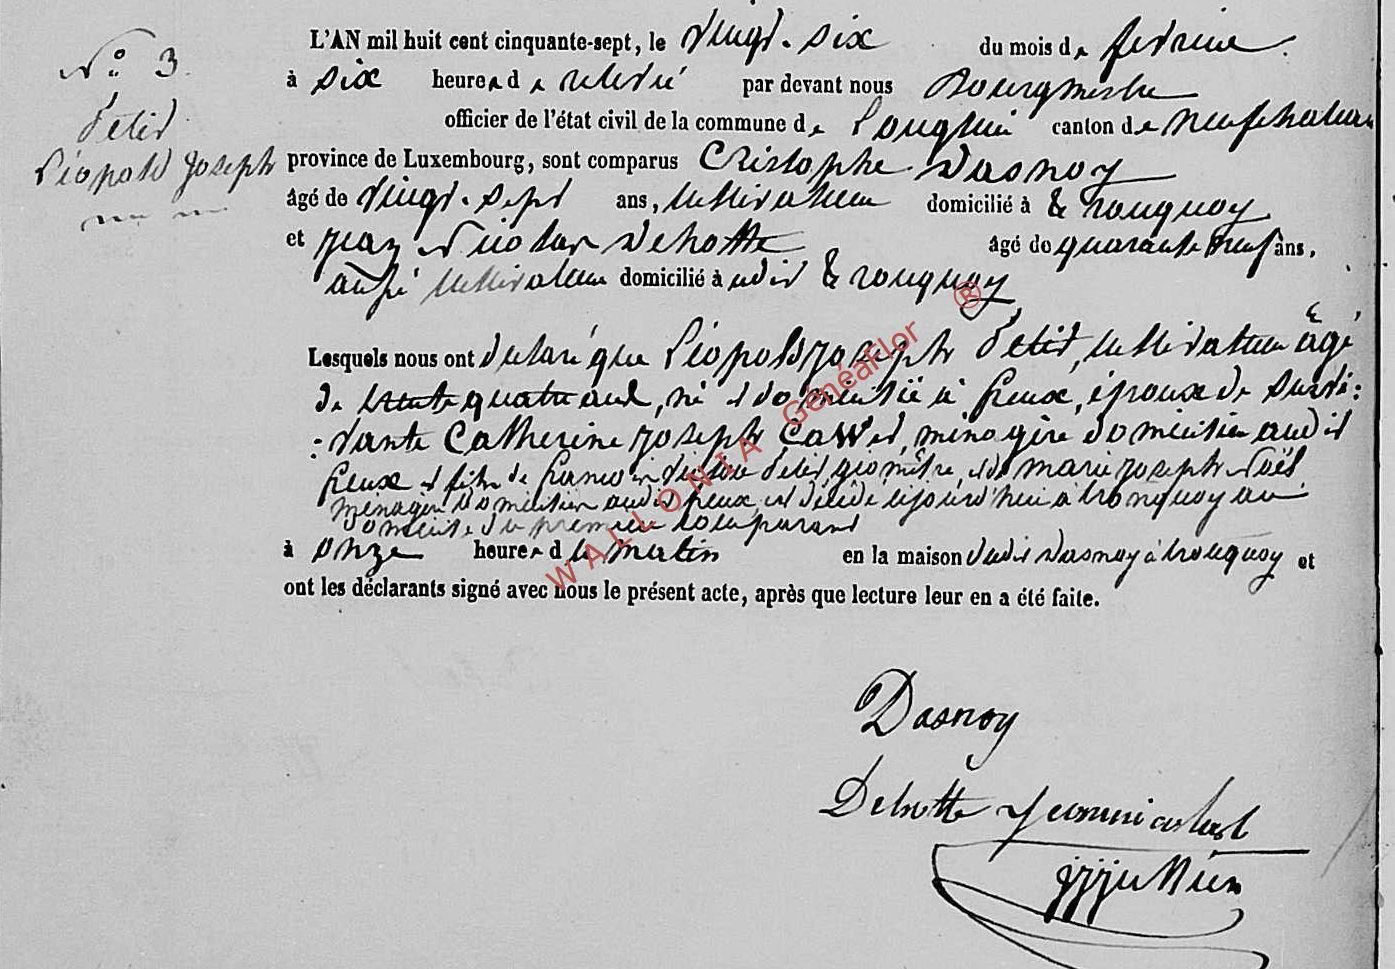 N° 3.
Petit
Léopold Joseph
L'AN mil huit cent cinquante-sept, le vingt-six du mois de fevrier.
à six heures de relevée par devant nous Bourgmestre
officier de l'état civil de la commune de Longlier canton de neufchateau
province de Luxembourg, sont comparus Cristophe Dasnoy
âgé de vingt-sept ans, cultivateur domicilié à tronquoy
et jean Nicolas Dehotte âgé de quarante neuf ans,
aussi cultivateur domicilié à udit tronquoy
Lesquels nous ont declaré que Léopold joseph Petit, cultivateur âgé
de trente quatre ans, né et domicilié à freux, époux de survi:
:vante Catherine joseph, ménagère domiciliée audit
freux et fils de petit géomètre, et de marie joseph Noël
ménagère domiciliée audit freux, est décédé aujourd'hui à tronquoy au
domicile du premier comparant
à onze heures du matin en la maison dudit Dasnoy à tronquoy et
ont les déclarants signé avec nous le présent acte, après que lecture leur en a été faite.
WALLONIA GenéaFlor ®
Dasnoy
Dehotte jeannicolas